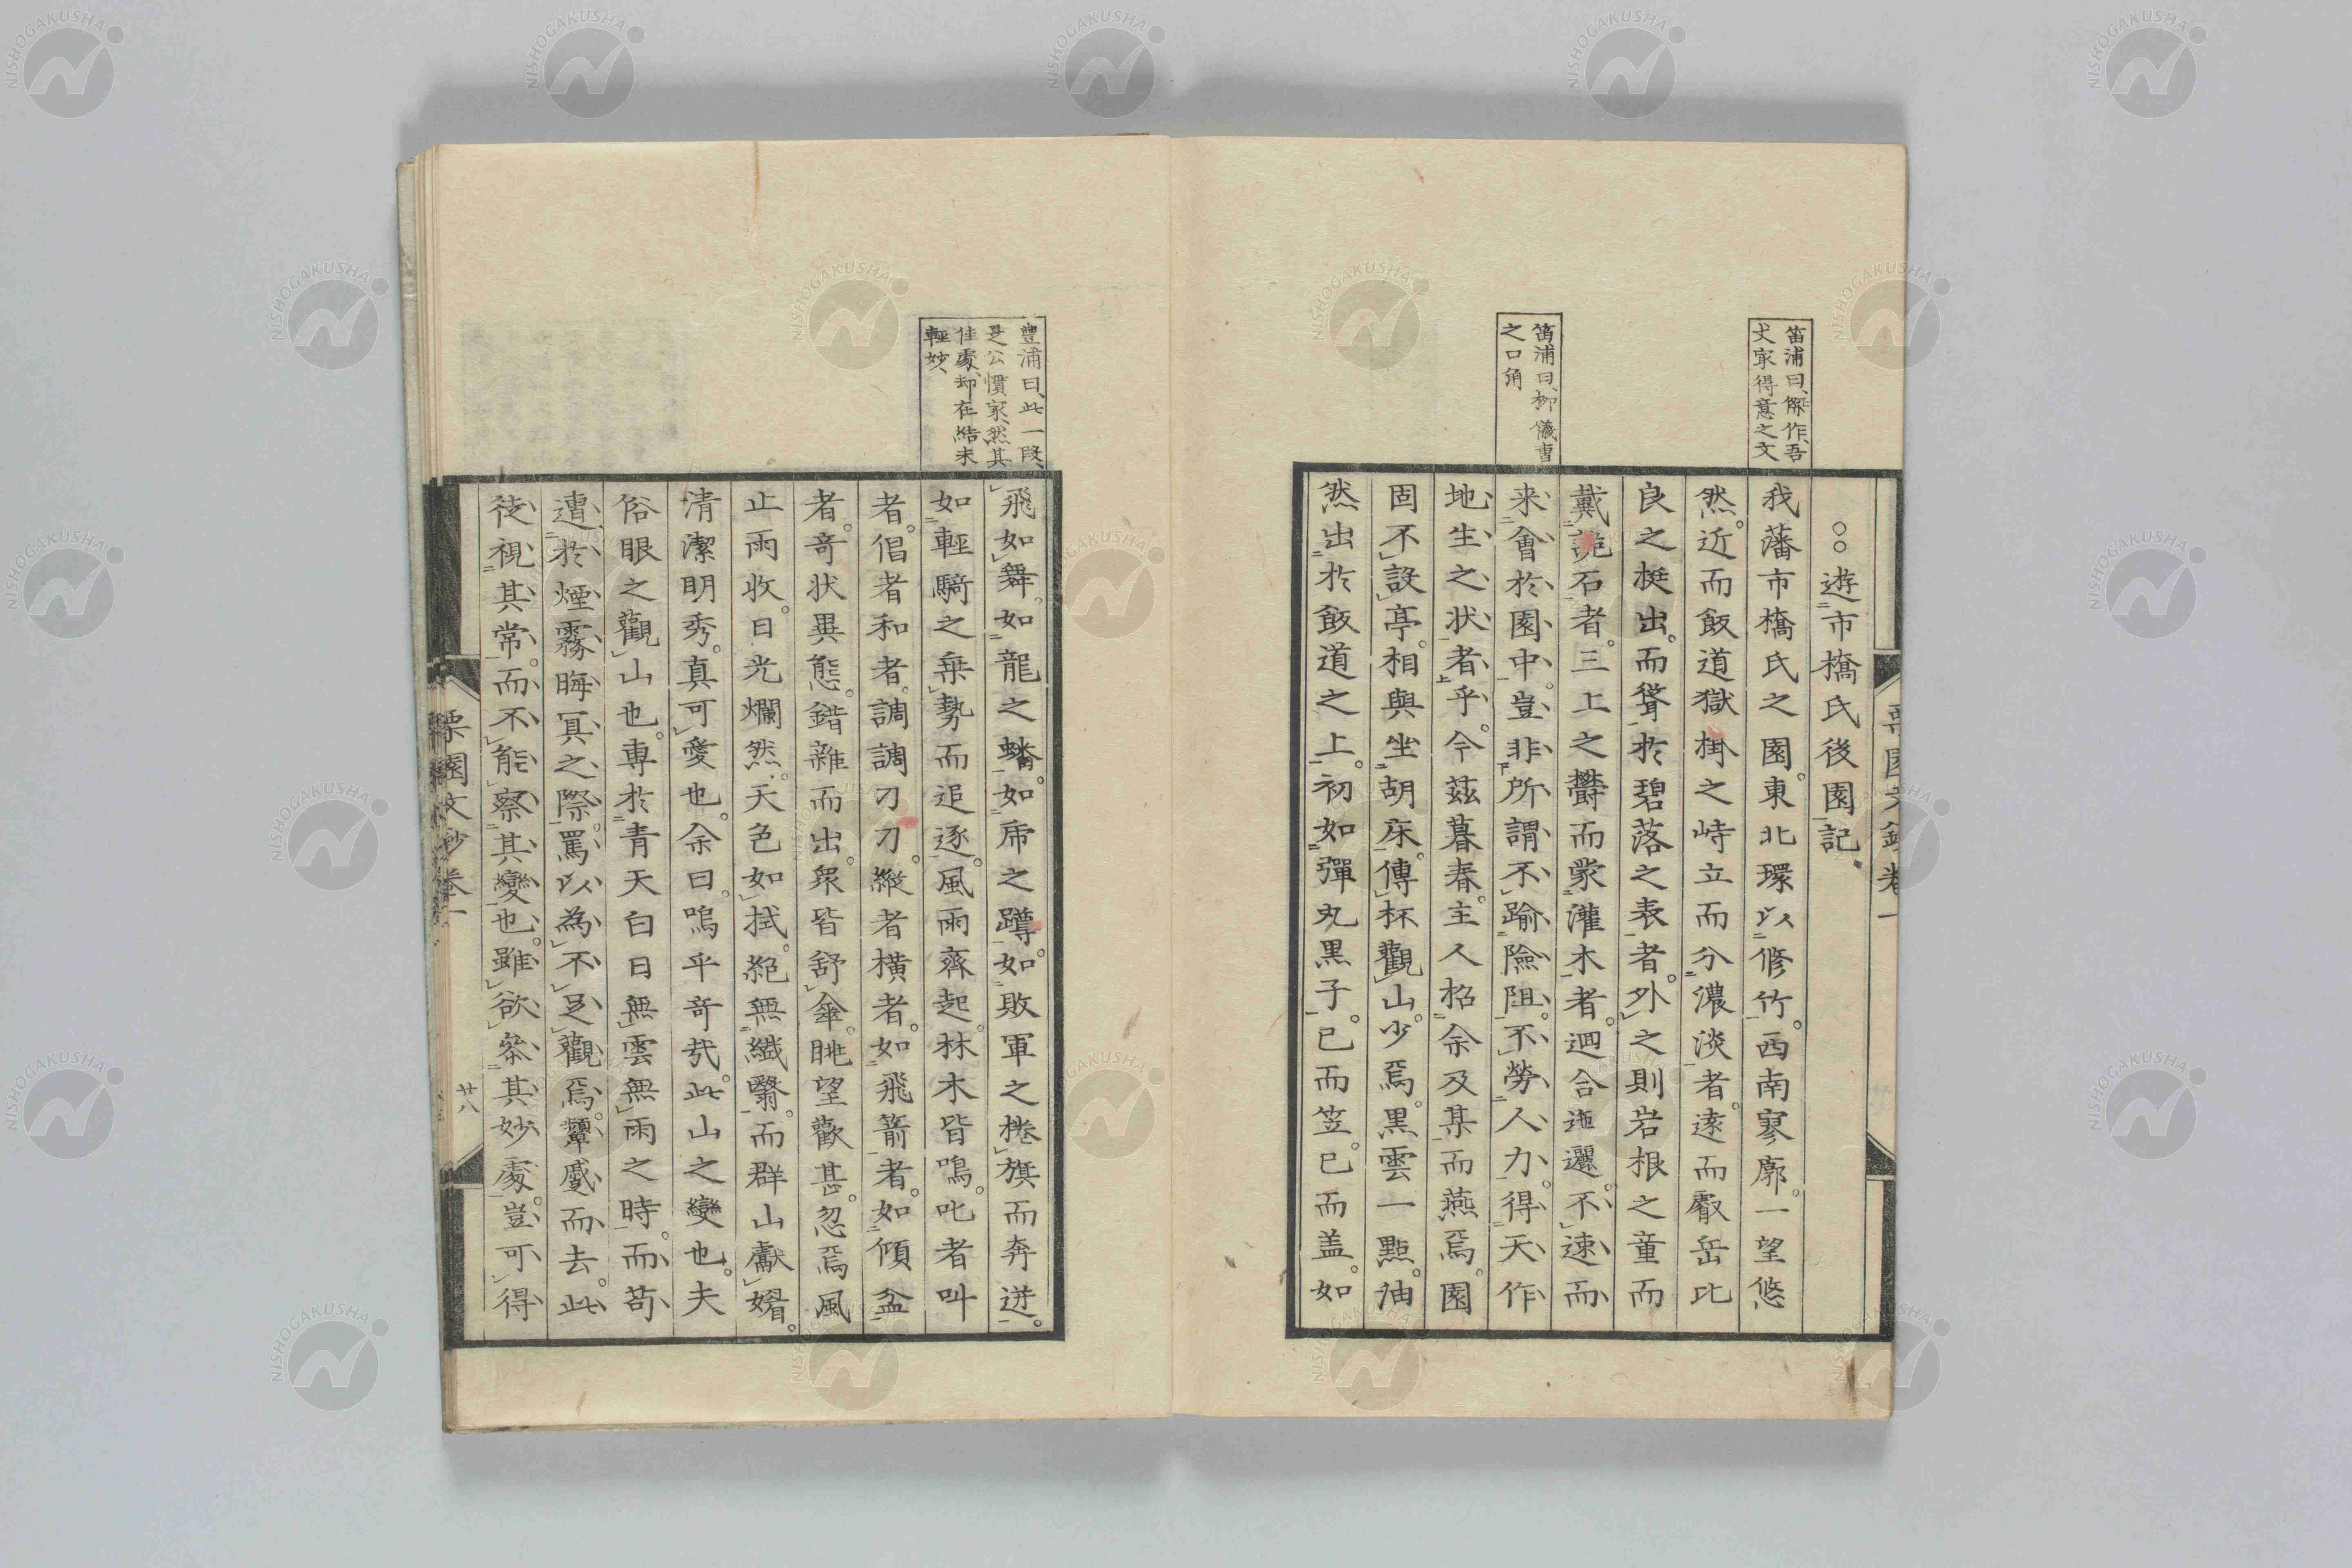 笛浦曰、傑作、吾
丈家得意之文
笛浦曰、柳儀曹
之口角
○○遊市橋氏後園記
我藩市橋氏之園。東北環以修竹。西南寥廓。一望悠
然。近而飯道獄掛之峙立而分濃淡者。遠而叡岳比
良之挺出。而聳於碧落之表者。外之則岩根之童而
戴詭石者。三上之欝而蒙灌木者。迴合迤邐。不速而
来會於園中。豈非所謂不踰險阻。不勞人力。得天作
地生之状者乎。今茲暮春。主人招余及某而燕焉。園
固不設亭。相與坐胡床。傳杯觀山。少焉。黒雲一點。油
然出於飯道之上。初如彈丸黒子。已而笠。已而盖。如
豊浦曰、此一段、
是公慣家、然其
佳處、却在結末
輕妙、
飛如舞。如龍之蟠。如乕之蹲。如敗軍之捲旗而奔逬。
如輕騎之乗勢而追逐。風雨齊起。林木皆鳴。叱者叫
者。倡者和者。調調刁刁。縱者横者。如飛箭者。如傾盆
者。奇状異態。錯雜而出。衆皆舒傘。眺望歡甚。忽焉風
止雨收。日光爛然。天色如拭。絶無纖翳。而群山獻媚。
清潔明秀。真可愛也。余曰。嗚乎奇哉。此山之變也。夫
俗眼之觀山也。専於青天白日無雲無雨之時。而苟
遭於煙霧晦冥之際。罵以為不足觀焉。顰蹙而去。此
徒視其常。而不能察其變也。雖欲參其妙處。豈可得
栗園文鈔卷一
廿八